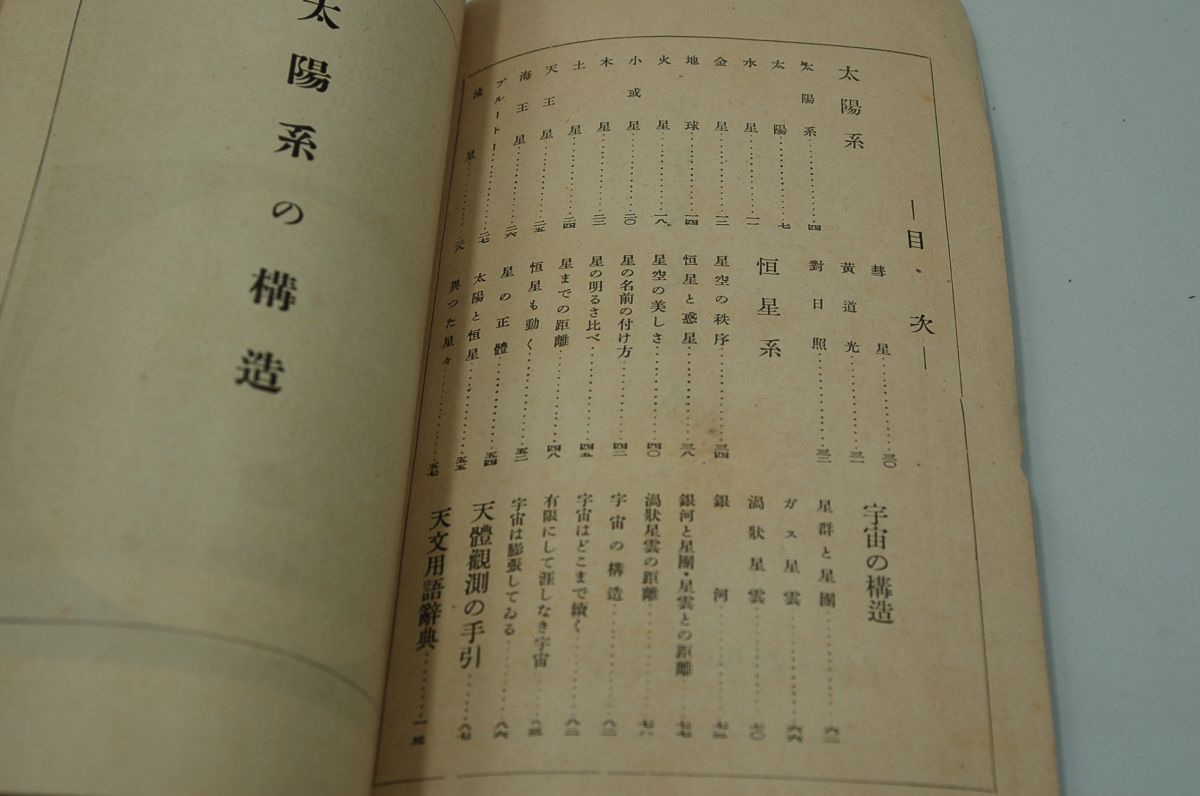 目・次
太陽系
太陽系………四
太陽………七
水星………一一
金星………一三
地球………一四
火星………一八
小或星………二〇
木星………二三
土星………二四
天王星………二五
海王星………二六
プルートー………二七
流星………二九
彗星………三〇
黃道光………三一
對日照………三二
恒星系
星空の秩序………三四
恒星と惑星………三八
星空の美しさ………四〇
星の名前の付け方………四二
星の明るさ比べ………四五
星までの距離………四八
恒星も動く………五二
星の正體………五四
太陽と恒星………五五
異つた星々………五七
宇宙の構造
星群と星團………六二
ガス星雲………六六
渦狀星雲………七〇
銀河………七三
銀河と星團・星雲との距離………七七
渦狀星雲の距離………七六
宇宙の構造………八二
宇宙はどこまで續く………八二
有限にして涯しなき宇宙………八三
宇宙は膨張してゐる………八六
天體觀測の手引………八七
天文用語辭典
太陽系の構造